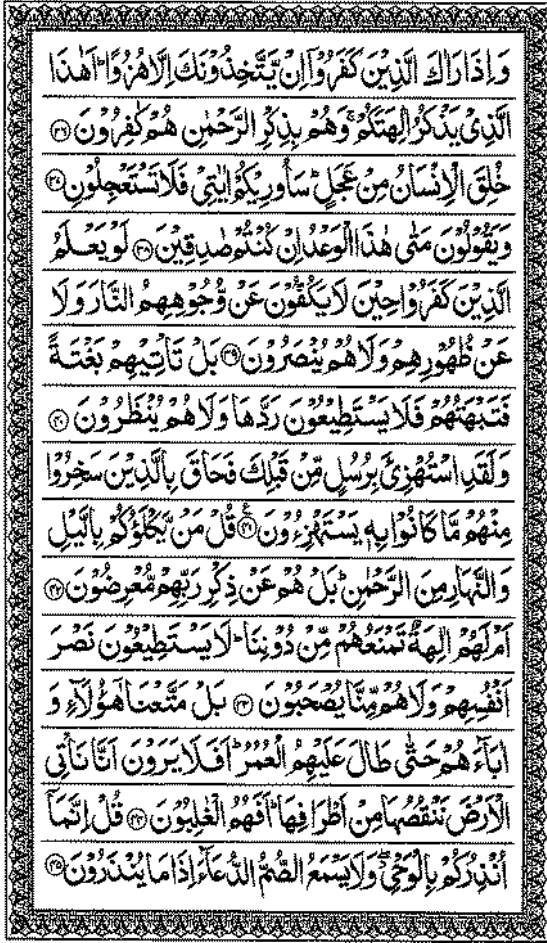 وَاِذَا رَاٰكَ الَّذِيْنَ كَفَرُوْۤا اِنْ يَّتَّخِذُوْنَكَ اِلَّا هُزُوًا ؕ اَهٰذَا
الَّذِيْ يَذْكُرُ اٰلِهَتَكُمْ ۚ وَهُمْ بِذِكْرِ الرَّحْمٰنِ هُمْ كٰفِرُوْنَ ۝۳۶
خُلِقَ الْاِنْسَانُ مِنْ عَجَلٍ ؕ سَاُورِيْكُمْ اٰيٰتِيْ فَلَا تَسْتَعْجِلُوْنِ ۝۳۷
وَيَقُوْلُوْنَ مَتٰى هٰذَا الْوَعْدُ اِنْ كُنْتُمْ صٰدِقِيْنَ ۝۳۸ لَوْ يَعْلَمُ
الَّذِيْنَ كَفَرُوْا حِيْنَ لَا يَكُفُّوْنَ عَنْ وُّجُوْهِهِمُ النَّارَ وَلَا
عَنْ ظُهُوْرِهِمْ وَلَا هُمْ يُنْصَرُوْنَ ۝۳۹ بَلْ تَاْتِيْهِمْ بَغْتَةً
فَتَبْهَتُهُمْ فَلَا يَسْتَطِيْعُوْنَ رَدَّهَا وَلَا هُمْ يُنْظَرُوْنَ ۝۴۰
وَلَقَدِ اسْتُهْزِئَ بِرُسُلٍ مِّنْ قَبْلِكَ فَحَاقَ بِالَّذِيْنَ سَخِرُوْا
مِنْهُمْ مَّا كَانُوْا بِهٖ يَسْتَهْزِءُوْنَ ۝۴۱ قُلْ مَنْ يَّكْلَؤُكُمْ بِالَّيْلِ
وَالنَّهَارِ مِنَ الرَّحْمٰنِ ؕ بَلْ هُمْ عَنْ ذِكْرِ رَبِّهِمْ مُّعْرِضُوْنَ ۝۴۲
اَمْ لَهُمْ اٰلِهَةٌ تَمْنَعُهُمْ مِّنْ دُوْنِنَا ؕ لَا يَسْتَطِيْعُوْنَ نَصْرَ
اَنْفُسِهِمْ وَلَا هُمْ مِّنَّا يُصْحَبُوْنَ ۝۴۳ بَلْ مَتَّعْنَا هٰۤؤُلَآءِ وَ
اٰبَآءَهُمْ حَتّٰى طَالَ عَلَيْهِمُ الْعُمُرُ ؕ اَفَلَا يَرَوْنَ اَنَّا نَاْتِي
الْاَرْضَ نَنْقُصُهَا مِنْ اَطْرَافِهَا ؕ اَفَهُمُ الْغٰلِبُوْنَ ۝۴۴ قُلْ اِنَّمَاۤ
اُنْذِرُكُمْ بِالْوَحْيِ ۖ وَلَا يَسْمَعُ الصُّمُّ الدُّعَآءَ اِذَا مَا يُنْذَرُوْنَ ۝۴۵